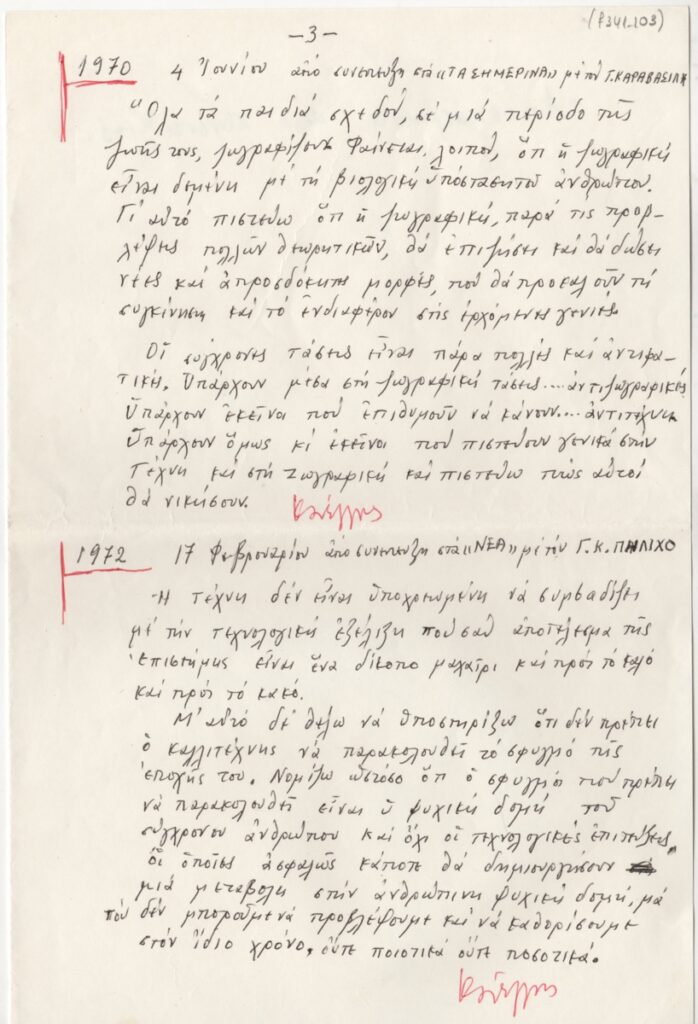 (P341_103)
-3-
1970 4 Ἰουνίου ἀπό συνέντευξη στά «ΤΑ ΣΗΜΕΡΙΝΑ» μέ τόν Γ. ΚΑΡΑΒΑΣΙΛΗ
"Ὅλα τά παιδιά σχεδόν, σέ μιά περίοδο τῆς
ζωῆς τους, ζωγραφίζουν. Φαίνεται, λοιπόν, ὅτι ἡ ζωγραφική
εἶναι δεμένη μέ τή βιολογική ὑπόσταση τοῦ ἀνθρώπου.
Γι' αὐτό πιστεύω ὅτι ἡ ζωγραφική, παρά τίς προβ-
λέψεις πολλῶν θεωρητικῶν, θά ἐπιζήσει καί θά δώσει
νέες καί ἀπροσδόκητες μορφές, πού θά προκαλοῦν τή
συγκίνηση καί τό ἐνδιαφέρον στίς ἐρχόμενες γενιές.
Οἱ σύγχρονες τάσεις εἶναι πάρα πολλές καί ἀντιφα-
τικές. Ὑπάρχουν μέσα στή ζωγραφική τάσεις.... ἀντιζωγραφικές
Ὑπάρχουν ἐκεῖνοι πού ἐπιθυμοῦν νά κάνουν.... ἀντιτέχνη.
Ὑπάρχουν ὅμως κι ἐκεῖνοι πού πιστεύουν γενικά στήν
Τέχνη καί στή Ζωγραφική καί πιστεύω πώς αὐτοί
θά νικήσουν.
1972 17 Φεβρουαρίου ἀπό συνέντευξη στά «ΝΕΑ» μέ τόν Γ. Κ. ΠΗΛΙΧΟ
-Η τέχνη δέν εἶναι ὑποχρεωμένη νά συμβαδίζει
μέ τήν τεχνολογική ἐξέλιξη πού σάν ἀποτέλεσμα τῆς
ἐπιστήμης εἶναι ἕνα δίκοπο μαχαίρι καί πρός τό καλό
καί πρός τό κακό.
Μ' αὐτό δέ θέλω νά ὑποστηρίξω ὅτι δέν πρέπει
ὁ καλλιτέχνης νά παρακολουθεῖ τό σφυγμό τῆς
ἐποχῆς του. Νομίζω ὡστόσο ὅτι ὁ σφυγμός πού πρέπει
νά παρακολουθεῖ εἶναι ἡ ψυχική δομή τοῦ
σύγχρονου ἀνθρώπου καί ὄχι οἱ τεχνολογικές ἐπιτεύξεις,
οἱ ὁποῖες ἀσφαλῶς κάποτε θά δημιουργήσουν
μιά μεταβολή στήν ἀνθρώπινη ψυχική δομή, μά
πού δέν μποροῦμε νά προβλέψουμε καί νά καθορίσουμε
στόν ἴδιο χρόνο, οὔτε ποιοτικά οὔτε ποσοτικά.